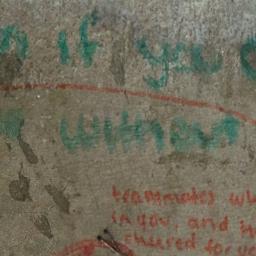 if you
without
teammates wh
in you, and
cheered for yo